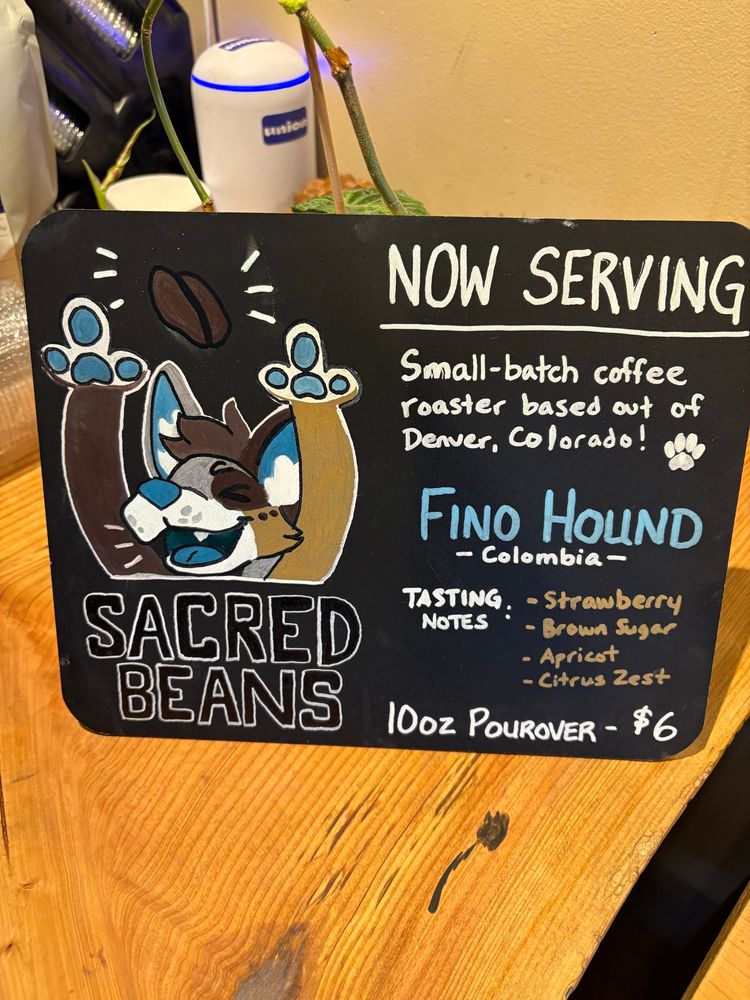 union
NOW SERVING
Small-batch coffee
roaster based out of
Denver, Colorado!
FINO HOUND
- Colombia -
TASTING NOTES: - Strawberry
- Brown Sugar
- Apricot
- Citrus Zest
10oz POUROVER - $6
SACRED
BEANS